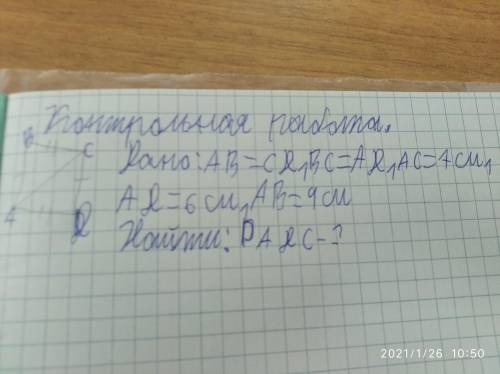 Контрольная работа.
B
C
Дано: AB=CD, BC=AD, AC=4см,
A
D
AD=6см, AB=9см
Найти: PADC-?
2021/1/26 10:50